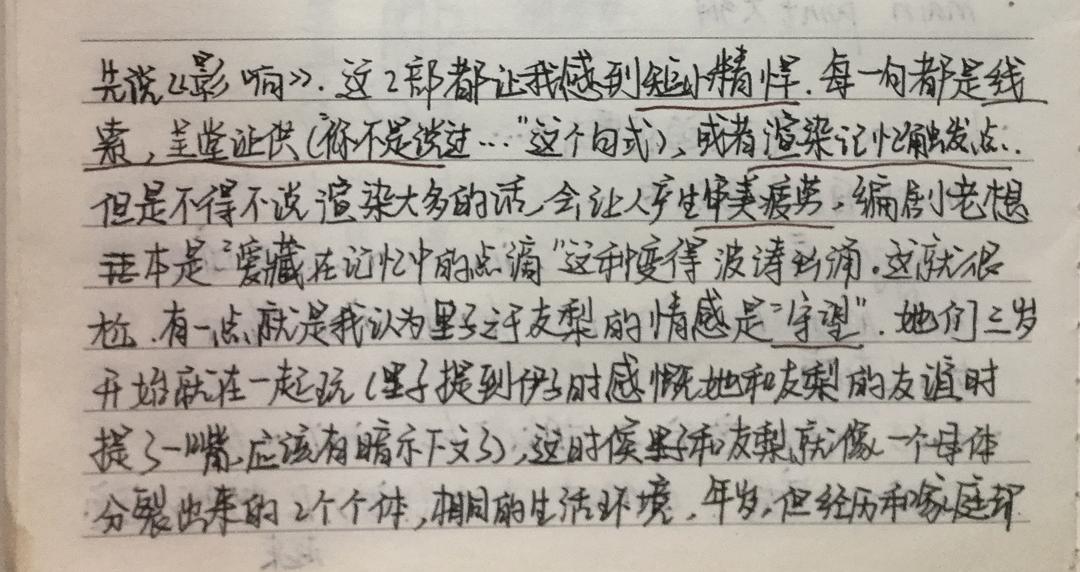 先说《影响》. 这2部都让我感到短小精悍. 每一句都是线
索, 呈堂证供(“你不是说过…”这个句式), 或者渲染记忆触发点.
但是不得不说渲染太多的话, 会让人产生审美疲劳. 编剧老想
本是“爱藏在记忆中的点滴”这种变得波涛汹涌. 这就很
尬. 有一点就是我认为里子之于友梨的情感是“守望”. 她们三岁
开始就在一起玩(里子提到伊子时感慨她和友梨的友谊时
提了一嘴, 应该有暗示下文了), 这时候里子和友梨就像一个母体
分裂出来的2个个体, 相同的生活环境, 年岁, 但经历和家庭却